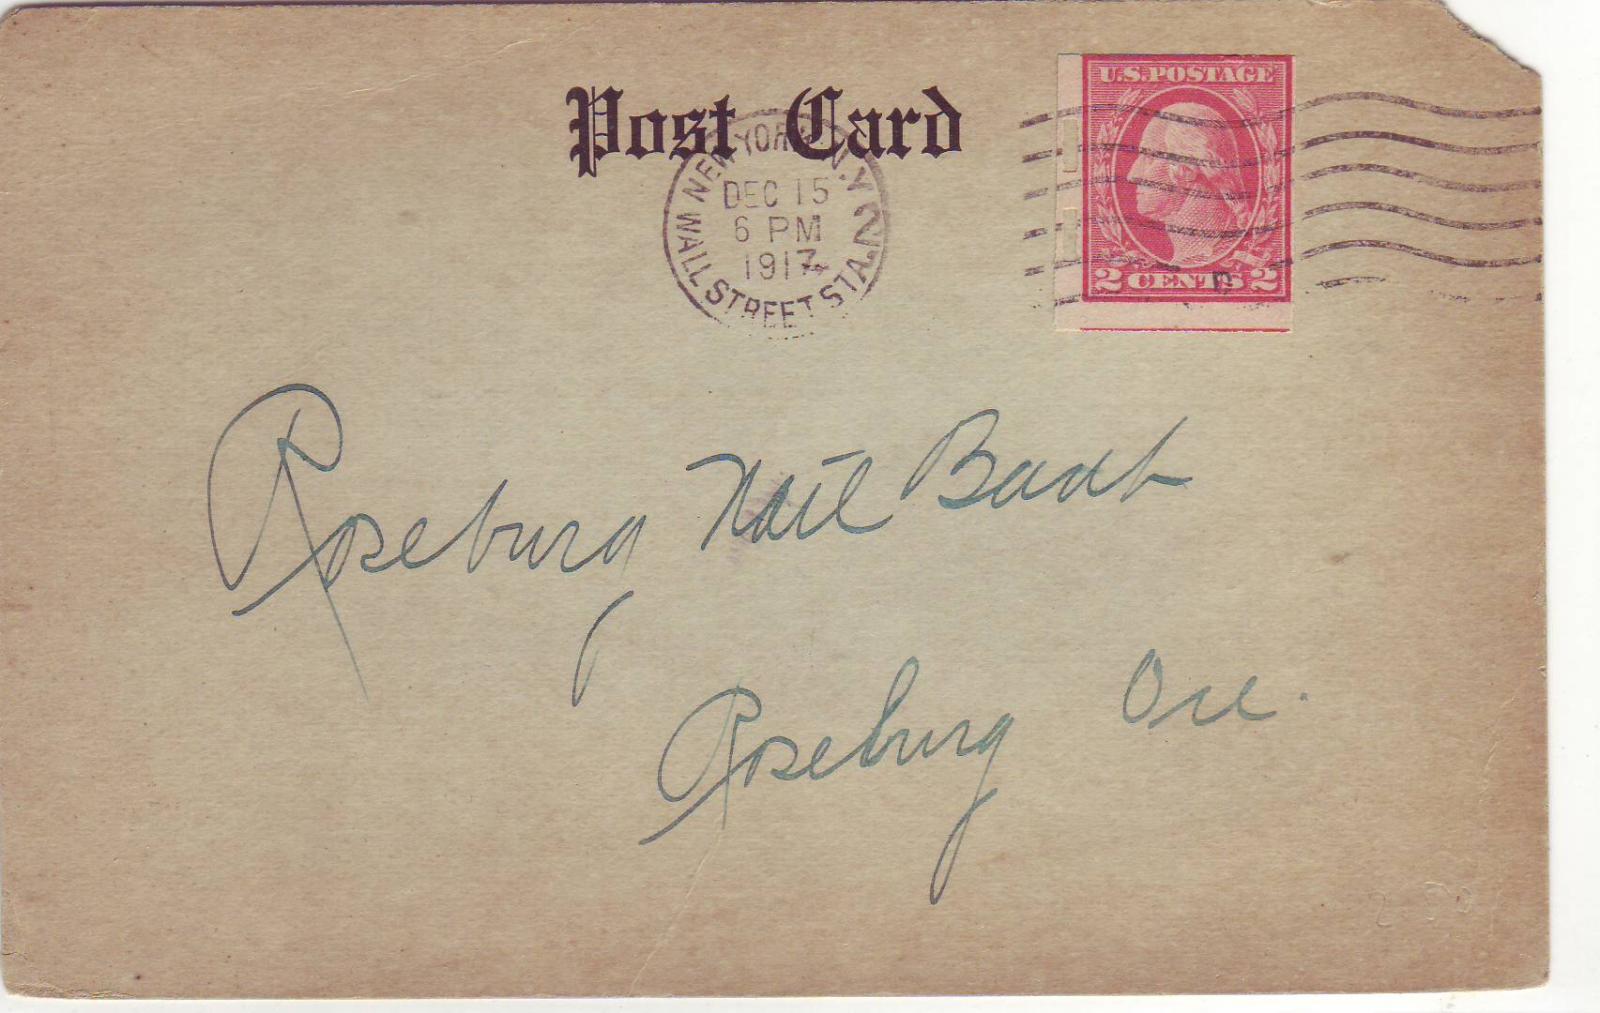 Post Card
U.S. POSTAGE
2 CENTS 2
NEW YORK, N.Y. 2
DEC 15
6 PM
1917
WALL STREET STA.
Roseburg Natl Bank
Roseburg Ore.